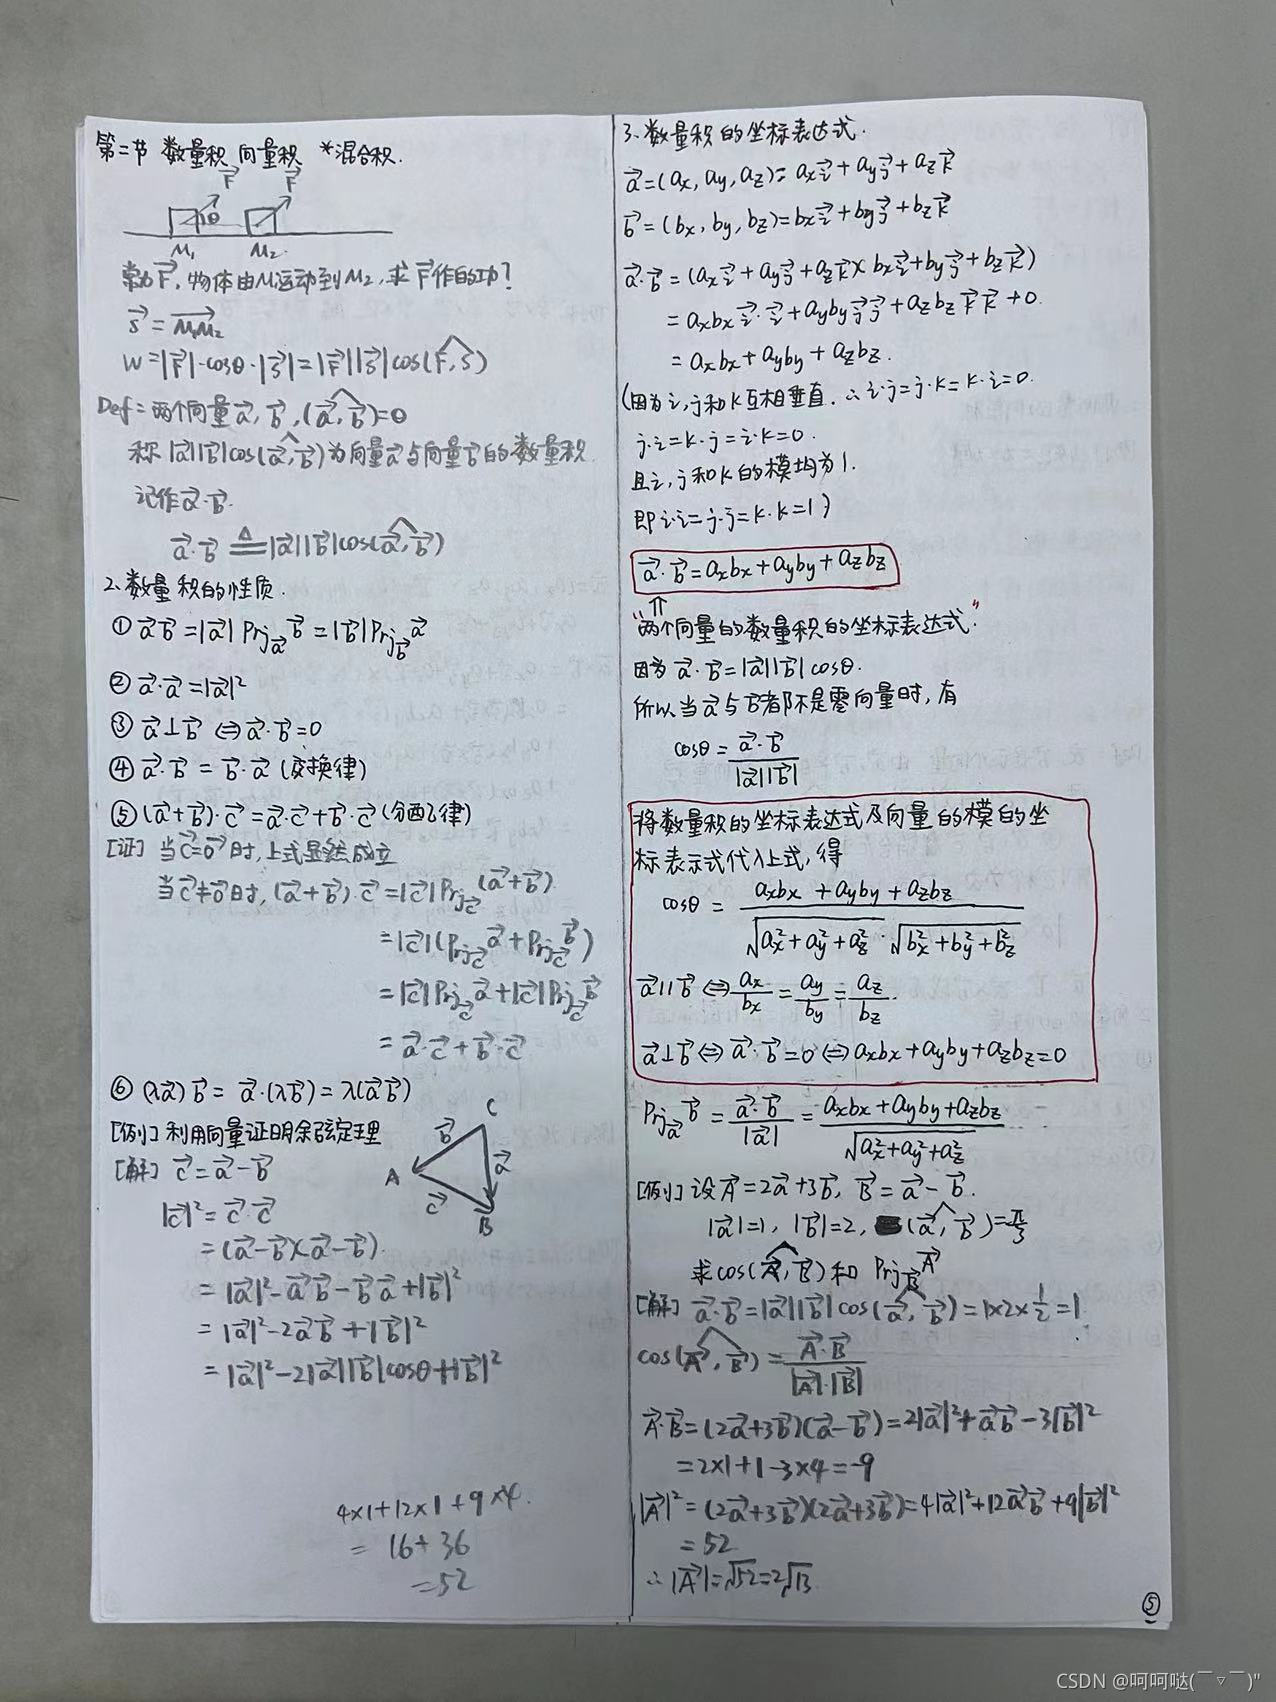 第二节 数量积 向量积 *混合积.
F⃗ F⃗
θ
M₁ M₂
常力F⃗, 物体由M₁运动到M₂, 求F⃗作的功?
S⃗ = M₁M₂⃗
W=|F⃗|·cosθ·|S⃗|=|F⃗||S⃗|cos(F⃗,S⃗)
Def=两个向量a⃗, b⃗, (a⃗,b⃗)=θ
称|a⃗||b⃗|cos(a⃗,b⃗)为向量a⃗与向量b⃗的数量积.
记作a⃗·b⃗.
a⃗·b⃗ ≜ |a⃗||b⃗|cos(a⃗,b⃗)
2.数量积的性质.
① a⃗b⃗=|a⃗|Prj_a⃗ b⃗=|b⃗|Prj_b⃗ a⃗
② a⃗·a⃗=|a⃗|²
③ a⃗⊥b⃗ ⇔ a⃗·b⃗=0
④ a⃗·b⃗ = b⃗·a⃗ (交换律)
⑤ (a⃗+b⃗)·c⃗=a⃗·c⃗+b⃗·c⃗ (分配律)
[证] 当c⃗=0⃗时,上式显然成立
当c⃗≠0⃗时, (a⃗+b⃗)·c⃗=|c⃗|Prj_c⃗(a⃗+b⃗)
=|c⃗|(Prj_c⃗ a⃗+Prj_c⃗ b⃗)
=|c⃗|Prj_c⃗ a⃗+|c⃗|Prj_c⃗ b⃗
= a⃗·c⃗+b⃗·c⃗
⑥ (λa⃗)b⃗= a⃗·(λb⃗)=λ(a⃗b⃗)
[例1] 利用向量证明余弦定理
C
b⃗
a⃗
A
c⃗
B
[解] c⃗=a⃗-b⃗
|c⃗|²=c⃗·c⃗
=(a⃗-b⃗)(a⃗-b⃗).
=|a⃗|²-a⃗b⃗-b⃗a⃗+|b⃗|²
=|a⃗|²-2a⃗b⃗+|b⃗|²
=|a⃗|²-2|a⃗||b⃗|cosθ+|b⃗|²
4×1+12×1+9×4.
= 16+36
=52
3.数量积的坐标表达式.
a⃗=(ax, ay, az)=axi⃗+ayj⃗+azk⃗
b⃗=(bx, by, bz)=bxi⃗+byj⃗+bzk⃗
a⃗·b⃗=(axi⃗+ayj⃗+azk⃗)(bxi⃗+byj⃗+bzk⃗)
=axbx i⃗·i⃗+ayby j⃗j⃗+azbz k⃗k⃗+0.
=axbx+ayby+azbz.
(因为i, j和k互相垂直.∴i·j=j·k=k·i=0.
j·i=k·j=i·k=0.
且i, j和k的模均为1.
即i·i=j·j=k·k=1)
a⃗·b⃗=axbx+ayby+azbz
⇑
"两个向量的数量积的坐标表达式."
因为 a⃗·b⃗=|a⃗||b⃗|cosθ.
所以当a⃗与b⃗都不是零向量时,有
cosθ=a⃗·b⃗/(|a⃗||b⃗|)
将数量积的坐标表达式及向量的模的坐
标表示式代入上式,得
cosθ = (axbx+ayby+azbz)/(√(ax²+ay²+az²)·√(bx²+by²+bz²))
a⃗∥b⃗ ⇔ ax/bx=ay/by=az/bz.
a⃗⊥b⃗ ⇔ a⃗·b⃗=0 ⇔ axbx+ayby+azbz=0
Prj_a⃗ b⃗=a⃗·b⃗/|a⃗|=(axbx+ayby+azbz)/√(ax²+ay²+az²)
[例1] 设A⃗=2a⃗+3b⃗, B⃗=a⃗-b⃗.
|a⃗|=1, |b⃗|=2, (a⃗,b⃗)=π/3
求cos(A⃗,B⃗)和 Prj_B⃗ A⃗
[解] a⃗·b⃗=|a⃗||b⃗|cos(a⃗,b⃗)=1×2×1/2=1.
cos(A⃗,B⃗)=A⃗·B⃗/(|A⃗|·|B⃗|)
A⃗·B⃗=(2a⃗+3b⃗)(a⃗-b⃗)=2|a⃗|²+a⃗b⃗-3|b⃗|²
=2×1+1-3×4=-9
|A⃗|²=(2a⃗+3b⃗)(2a⃗+3b⃗)=4|a⃗|²+12a⃗b⃗+9|b⃗|²
=52
∴|A⃗|=√52=2√13.
⑤
CSDN @呵呵哒(￣▽￣)"